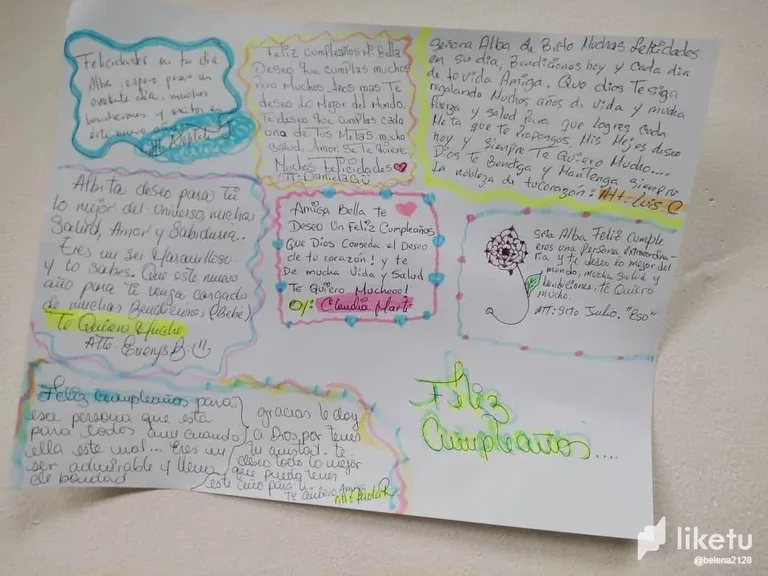 Felicidades en tu día
Alba, espero pases un
excelente día, muchas
bendiciones y éxitos en
este nuevo
Att:
Feliz Cumpleaños Mi Bella
Deseo que cumplas muchos
pero muchos años mas Te
deseo lo Mejor del Mundo,
Te deseo que cumplas cada
una de Tus Metas mucho
Salud, Amor, Se le quiere
Muchas Felicidades
ATT: Daniela Gú
Señora Alba de Brito Muchas felicidades
en su dia, Bendiciones hoy y Cada dia
de tu vida Amiga. Que dios Te siga
regalando Muchos años de Vida y mucha
fuerza y salud para que logres Cada
Meta que te propongas. Mis Mejores deseo
hoy y siempre Te Quiero Mucho....
Dios Te Bendiga y Mantenga siempre
La nobleza de tu corazón: Att: Luis. C
Albita deseo para Tú
lo mejor del Universo, mucha
Salud, Amor y Sabiduria.
Eres un ser Maravilloso
y lo sabes. Que este nuevo
año para te venga cargado
de muchas Bendiciones, (Bebe)
Te Quiero Mucho
Atte Evenys B.
Amiga Bella Te
Deseo Un Feliz Cumpleaños
Que Dios Conceda el Deseo
de tu corazón! y te
De mucha Vida y Salud
Te Quiero Muchooo!
Claudia Mart
Srta Alba Feliz Cumple
eres una persona extraordina-
ria, y te deseo lo mejor del
mundo, mucha salud y
bendiciones, te Quiero
mucho.
ATT: Srto Julio. "Eso"
Feliz cumpleaños para
esa persona que esta
para todos aun cuando
ella este mal... Eres un
ser admirable y llena
de bondad
gracias le doy
a Dios, por tener
tu amistad. te
deseo todo lo mejor
que pueda tener
este año para
te quiero Att: Paola R
Feliz
Cumpleaños....
liketu
@belena2128